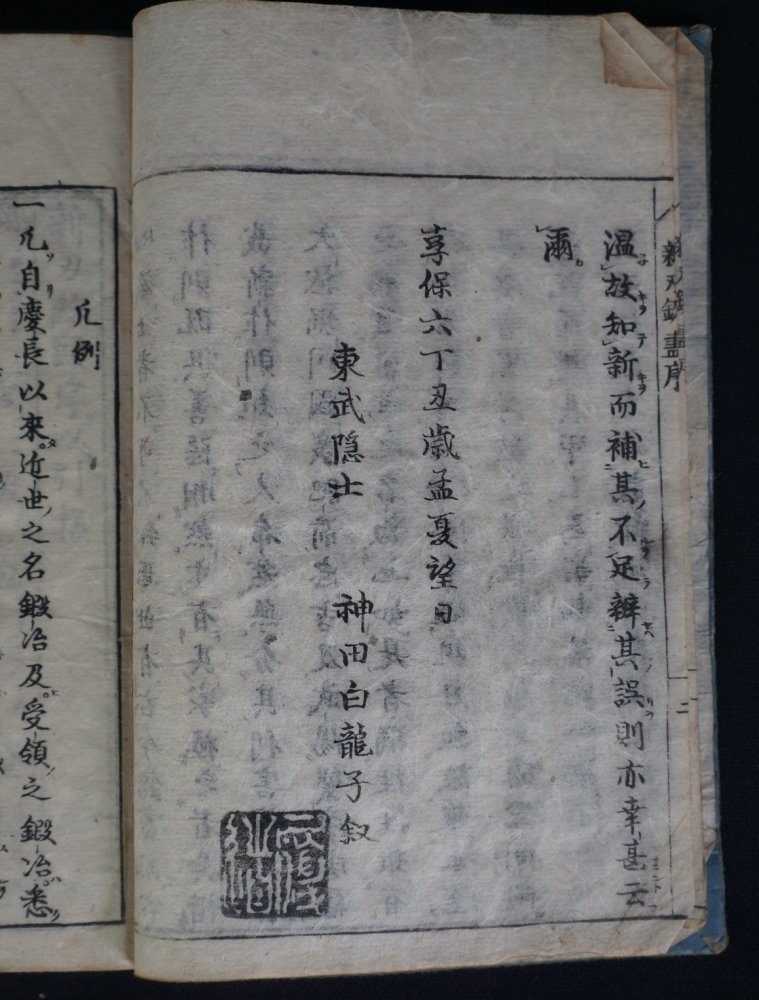 新刃銘盡序
温故知新而補其不足辨其誤則亦幸甚云
爾
享保六丁丑歳孟夏望日
東武隠士 神田白龍子叙
凡例
一凡自慶長以來近世之名鍛冶及受領之鍛冶悉